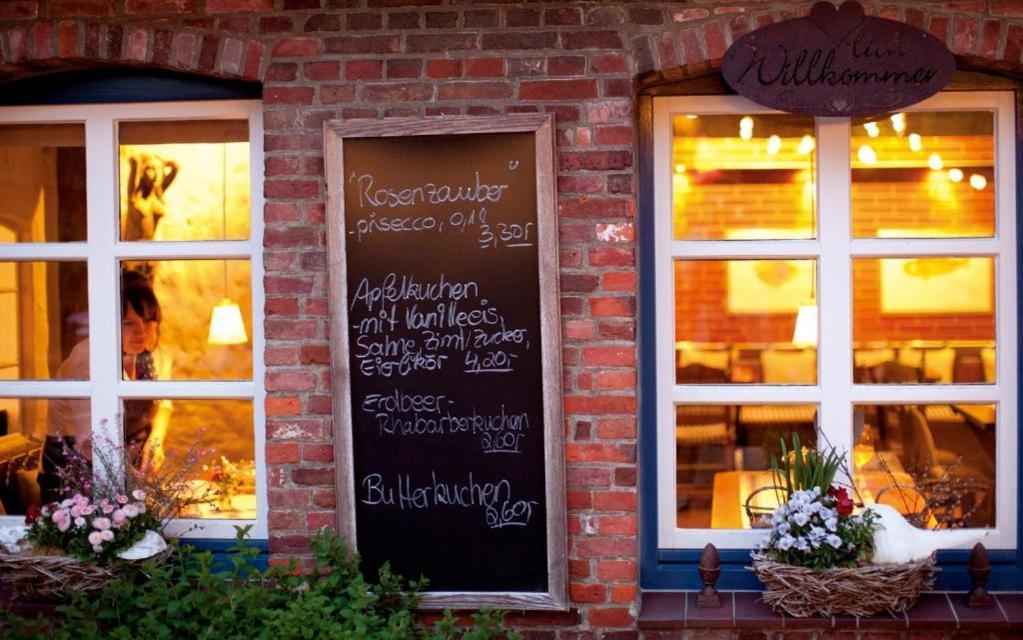 Herzlich
Willkommen
"Rosenzauber"
-pisecco, 0,1l
3,30,-
Apfelkuchen
-mit Vanilleeis,
Sahne, Zimt/Zucker,
Eierlikör 4,20,-
Erdbeer-
Rhabarberkuchen
2,60,-
Butterkuchen
2,60,-